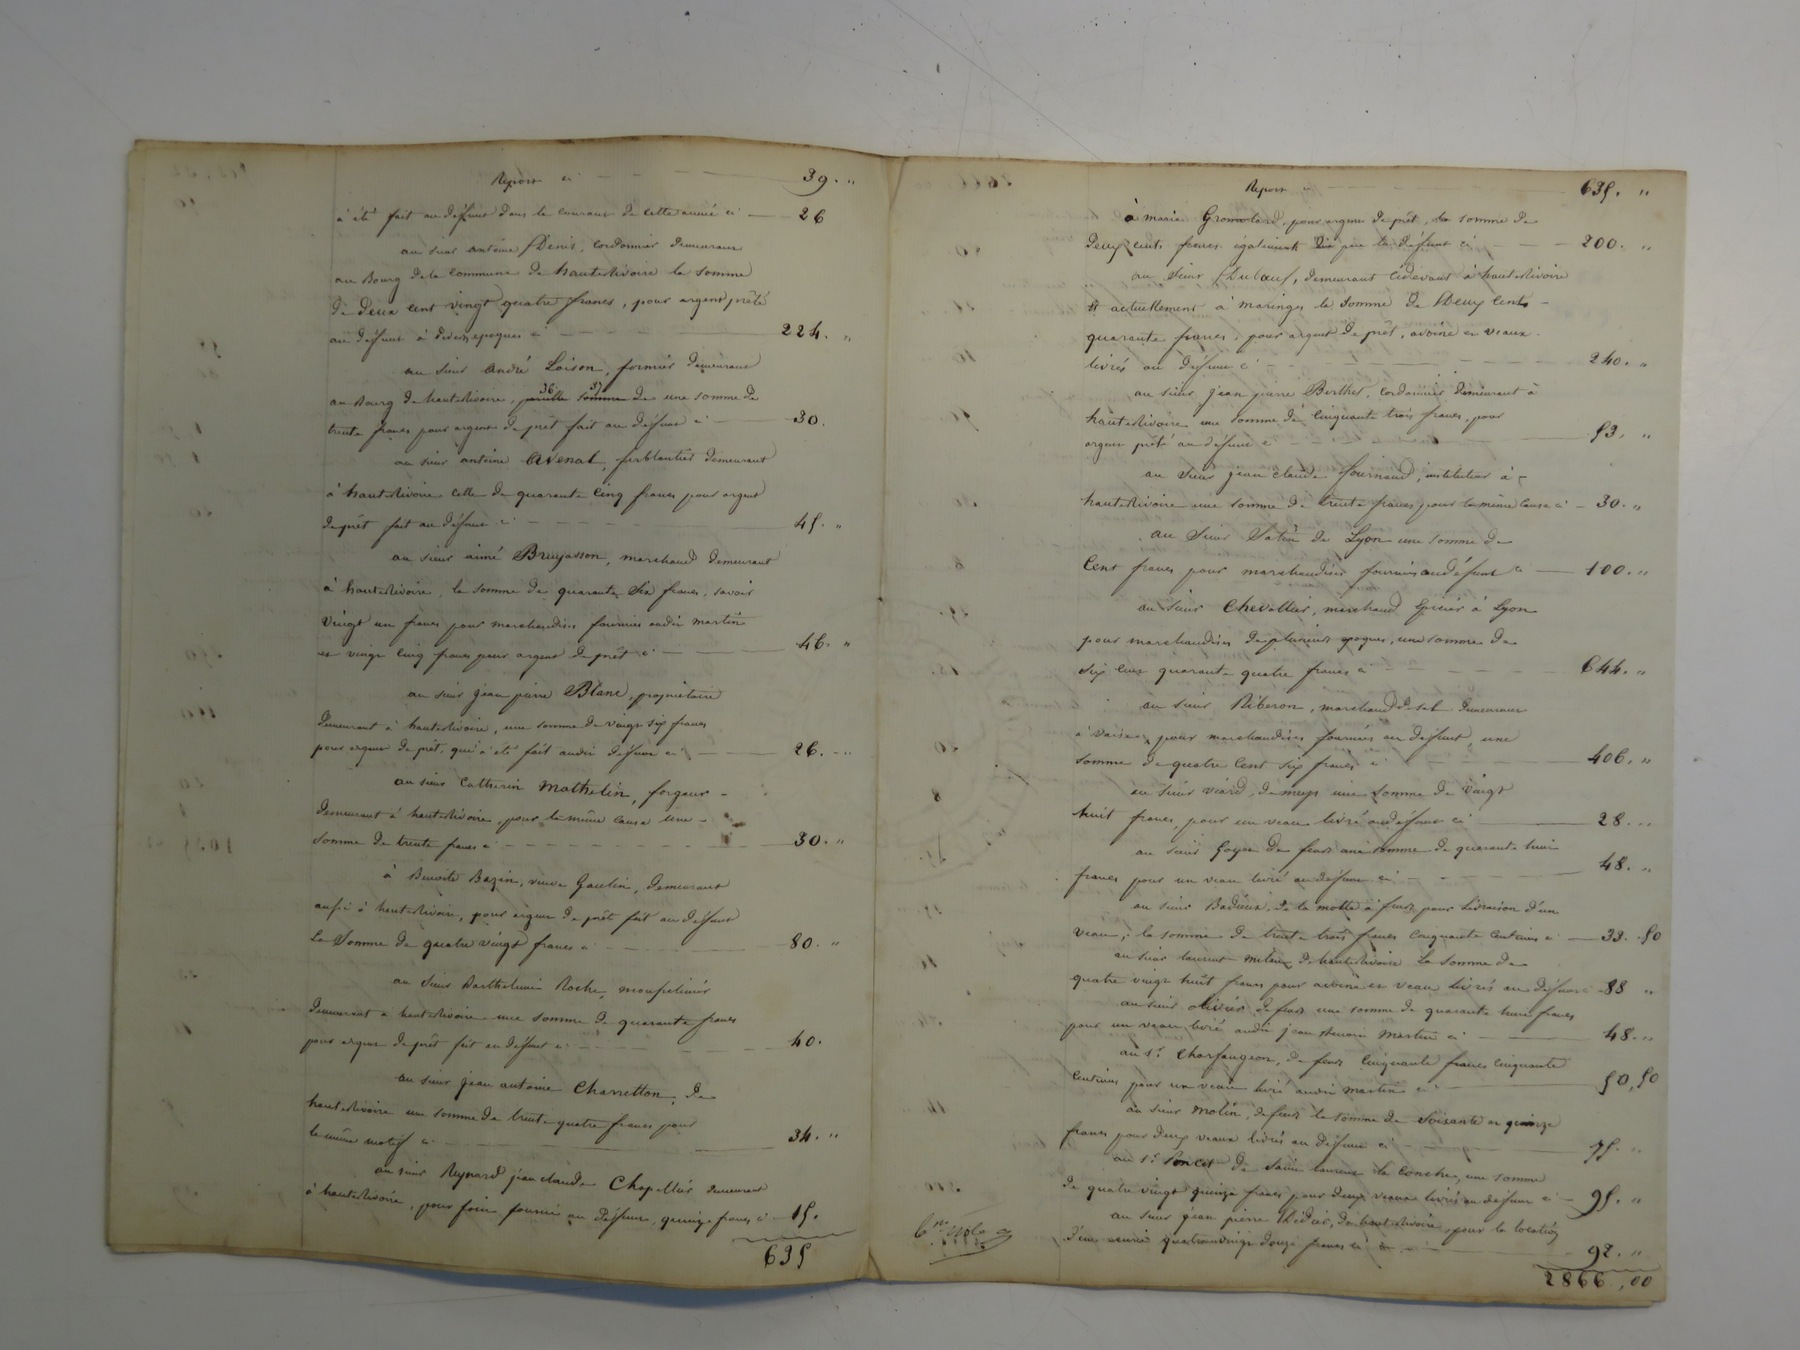 Report ci 39. "
a été fait au défunt dans le courant de cette année ci 26
au sieur antoine Denis, cordonnier demeurant
au Bourg de la commune de hauterivoire la somme
de deux cent vingt quatre francs, pour argent prêté
au défunt à diverses epoques ci 224. "
au sieur André Loison, fermier demeurant
au Bourg de hauterivoire, pareille somme de une somme de
trente francs pour argent de prêt fait au défunt ci 30.
au sieur antoine Avenat, ferblantier demeurant
à hauterivoire celle de quarante cinq francs pour argent
de prêt fait au défunt ci 45. "
au sieur aimé Bruyasson, marchand demeurant
à hauterivoire, la somme de quarante Six francs, savoir
vingt un francs pour marchandises fournies audit martin
et vingt cinq francs pour argent de prêt ci 46. "
au sieur jean pierre Blanc, propriétaire
demeurant à hauterivoire, une somme de vingt six francs
pour argent de prêt, qui a été fait audit défunt ci 26. "
au sieur Catherin Mathelin, forgeur
demeurant à hauterivoire, pour la même cause une
somme de trente francs ci 30. "
à Benoite Bazin, veuve Gaulin, demeurant
aussi à hauterivoire, pour argent de prêt fait au défunt
La Somme de quatre vingt francs ci 80. "
au sieur Barthelemi Roche,
demeurant à hauterivoire une somme de quarante francs
pour argent de prêt fait au défunt ci 40.
au sieur jean antoine Charretton, de
hauterivoire une somme de trente quatre francs pour
le même motif ci 34. "
au sieur Reynard jean claude Chapellier demeurant
à hauterivoire, pour foin fourni au défunt, quinze francs ci 15.
635
Report ci 635. "
à marie Gromolard, pour argent de prêt, la somme de
Deux cents francs également par le défunt ci 200. "
au sieur Duboeuf, demeurant cidevant à hauterivoire
et actuellement à maringes la somme de Deux Cents
quarante francs, pour argent de prêt, avoine et veaux
livrés au défunt ci 240. "
au sieur jean pierre Berthet, cordonnier demeurant à
hauterivoire une somme de Cinquante trois francs, pour
argent prêté au défunt ci 53. "
au sieur jean claude fournand, instituteur à
hauterivoire une somme de trente francs pour la même cause ci 30. "
au Sieur Satin de Lyon une somme de
Cent francs pour marchandises fournies au défunt ci 100. "
au sieur Chevallier, marchand Epicier à Lyon
pour marchandises de plusieurs epoques, une somme de
six cent quarante quatre francs ci 644. "
au sieur Riberon, marchand de sel demeurant
à Vaise, pour marchandises fournies au défunt, une
somme de quatre Cent six francs ci 406. "
au sieur viard, de meys une somme de vingt
huit francs, pour un veau livré au défunt ci 28. "
au sieur Goyet de feurs une somme de quarante huit
francs pour un veau livré au défunt ci 48. "
au sieur Badieux, de la motte à feurs pour Livraison d'un
veau, la somme de trente trois francs Cinquante Centimes ci 33. 50
au sieur laurent de hauterivoire La somme de
quatre vingt huit francs pour avoine et veau livrés au défunt 88 "
au sieur Olivier de feurs une somme de quarante huit francs
pour un veau livré audit jean Martin ci 48. "
au Sr. Charfaugeon, de feurs Cinquante francs Cinquante
Centimes pour un veau livré audit martin ci 50,50
au sieur Molin, de feurs la somme de Soixante et quinze
francs pour deux veaux livrés au défunt ci 75. "
au Sr. Poncet de saint laurent la conche, une somme
de quatre vingt quinze francs pour deux veaux livrés au défunt ci 95. "
au sieur jean pierre Didier, de hauterivoire, pour la location
d'une quatrevingt douze francs ci 92. "
2866,00